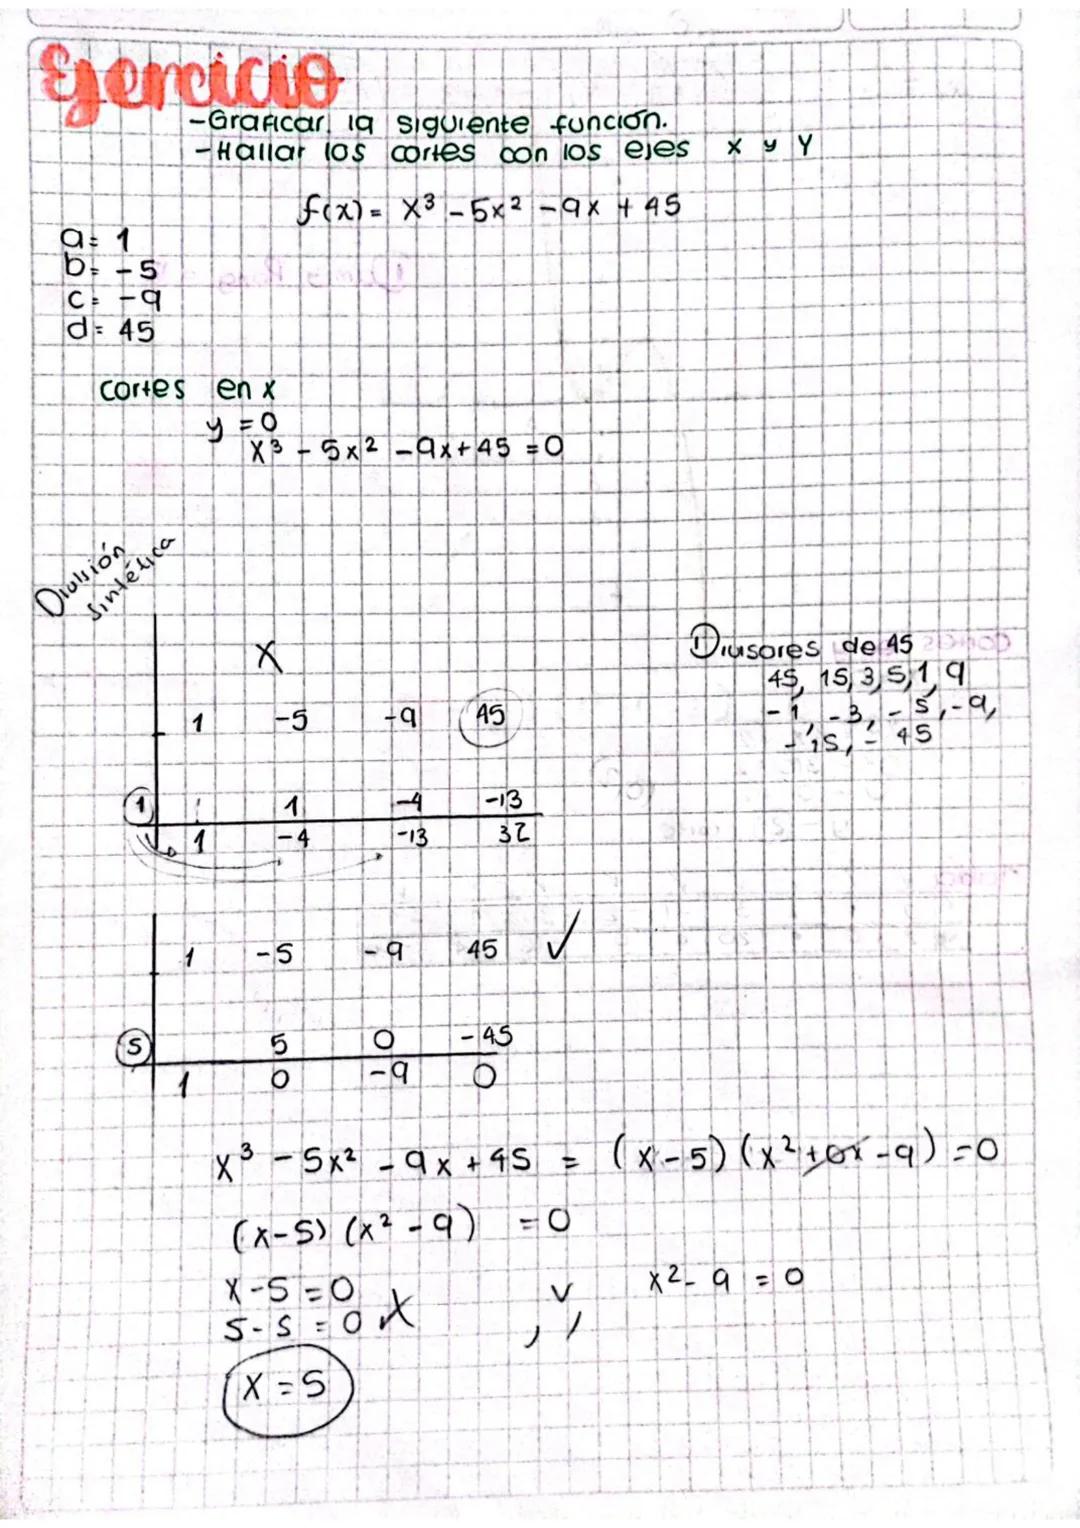 Ejercicio
-Graficar la siguiente función.
-Hallar los cortes con los ejes x y Y
f(x) = x³ - 5x² - 9x + 45
a = 1
b = -5
c = -9
d = 45
cortes en x
y = 0
x³ - 5x² - 9x + 45 = 0
División
Sintética
X
Divisores de 45
45, 15, 3, 5, 1, 9
-1, -3, -5, -9,
-15, -45
1 -5 -9 45
1 1 -4 -13
1 -4 -13 32
1 -5 -9 45 ✓
5 5 0 -45
1 0 -9 0
x³ - 5x² - 9x + 45 = (x-5)(x²+0x-9) = 0
(x-5)(x²-9) = 0
x-5 = 0 v x²-9 = 0
5-5 = 0 X
x = 5